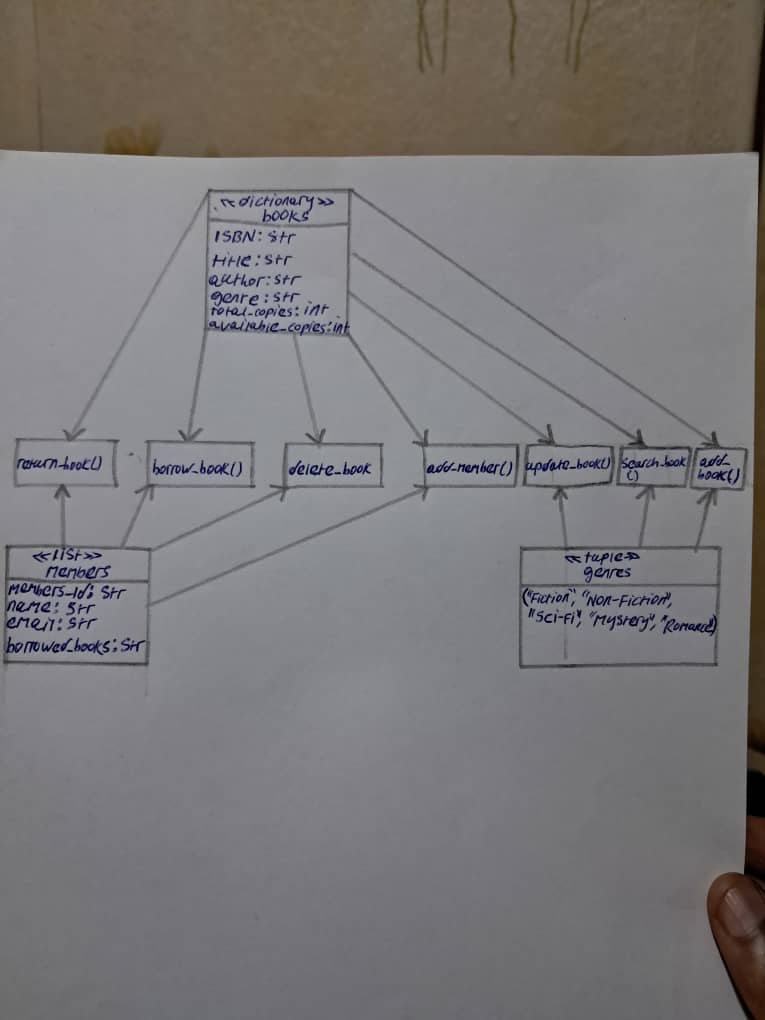 <<dictionary>>
books
ISBN: Str
title: str
author: str
genre: str
total_copies: int
available_copies: int
return_book()
borrow_book()
delete_book
add_member()
update_book()
search_book
()
add_
book()
<<list>>
members
members_Id: Str
name: Str
email: Str
borrowed_books: Str
<<tuple>>
genres
("Fiction", "Non-Fiction",
"Sci-Fi", "Mystery", "Romance")